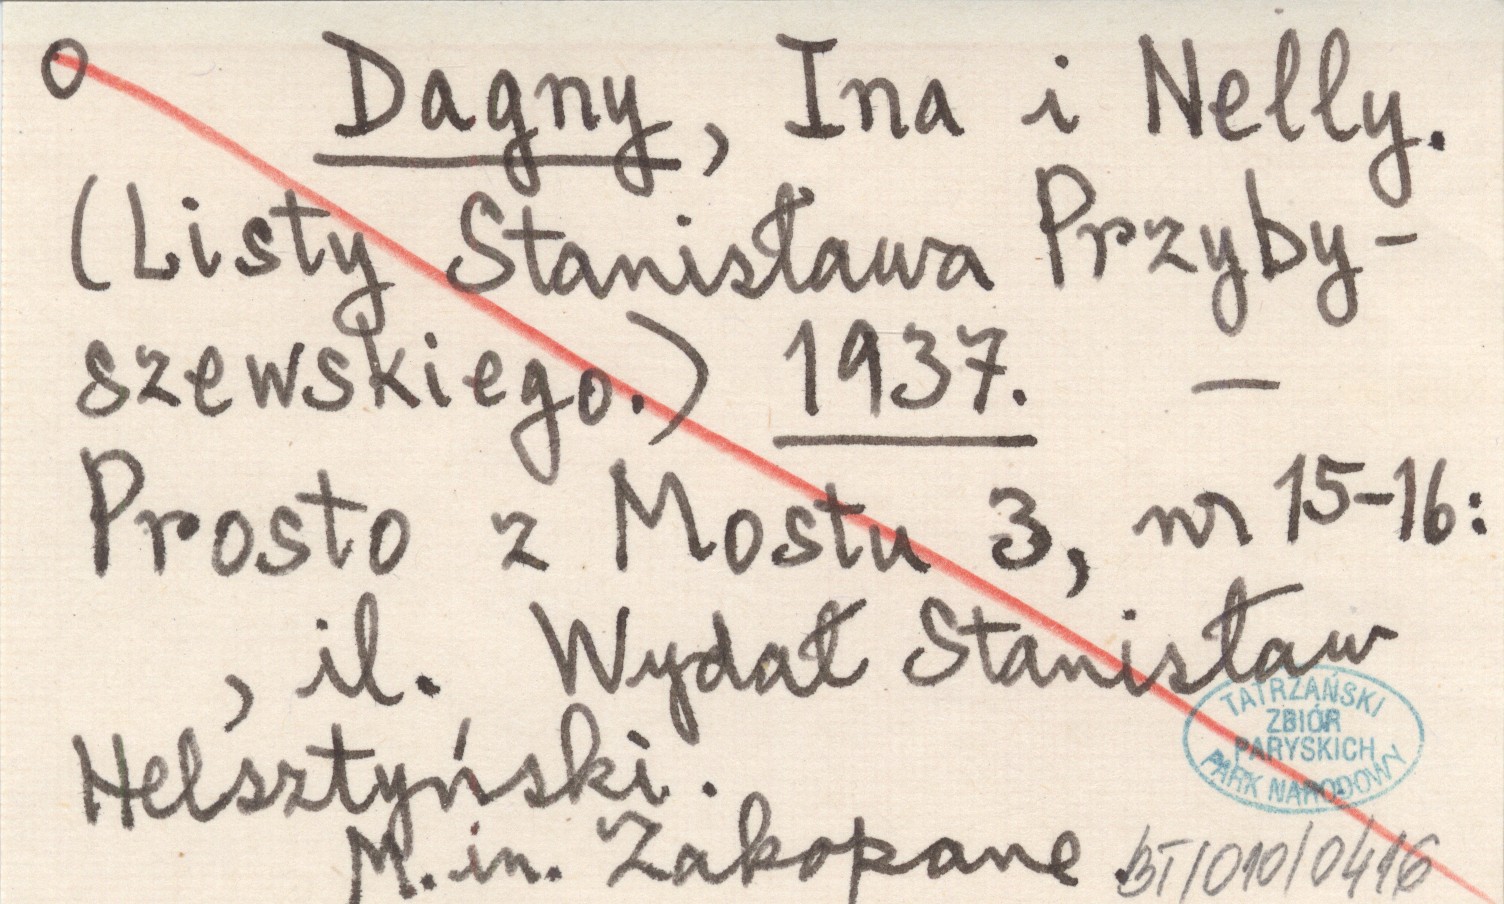 Dagny, Ina i Nelly.
(Listy Stanisława Przyby-
szewskiego.) 1937. —
Prosto z Mostu 3, nr 15-16:
, il. Wydał Stanisław
Helsztyński.
M. in. Zakopane.
TATRZAŃSKI
ZBIÓR
PARYSKICH
PARK NARODOWY
BT/010/0416